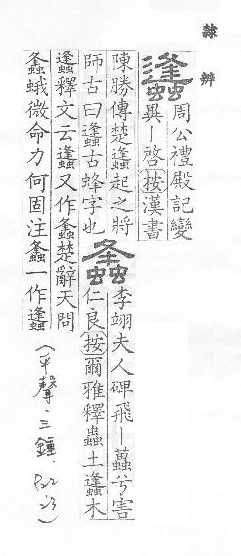 隸辨
蠭周公禮殿記變
異丨啓按漢書
陳勝傳楚蠭起之將
師古曰蠭古蜂字也
螽李翊夫人碑飛丨蠆兮害
仁良按爾雅釋蟲土蠭木
蠭釋文云蠭又作螽楚辭天問
螽蛾微命力何固注螽一作蠭
(平聲.三鍾.